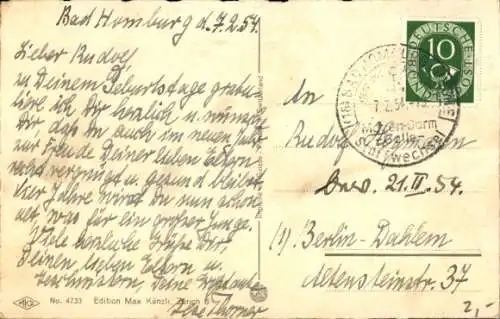 Bad Homburg d. 7.2.54.
Lieber Rudolf
zu Deinem Geburtstage gratu-
liere ich Dir herzlich u. wünsche
Dir, daß Du auch im neuen Jahr
zur Freude Deiner lieben Eltern
recht vergnügt u. gesund bleibst.
Vier Jahre wirst Du nun schon
alt, was für ein großer Junge.
Viele herzliche Grüße Dir,
Deinen lieben Eltern u.
Deine
Ilse
No. 4733 Edition Max Künzli, Zürich 6
DEUTSCHE BUNDESPOST
10
BAD HOMBURG
7.2.54
Magen-Darm
Stoffwechsel
An
Rudolf
21. II. 54.
(1) Berlin-Dahlem
Altensteinstr. 37
2,-